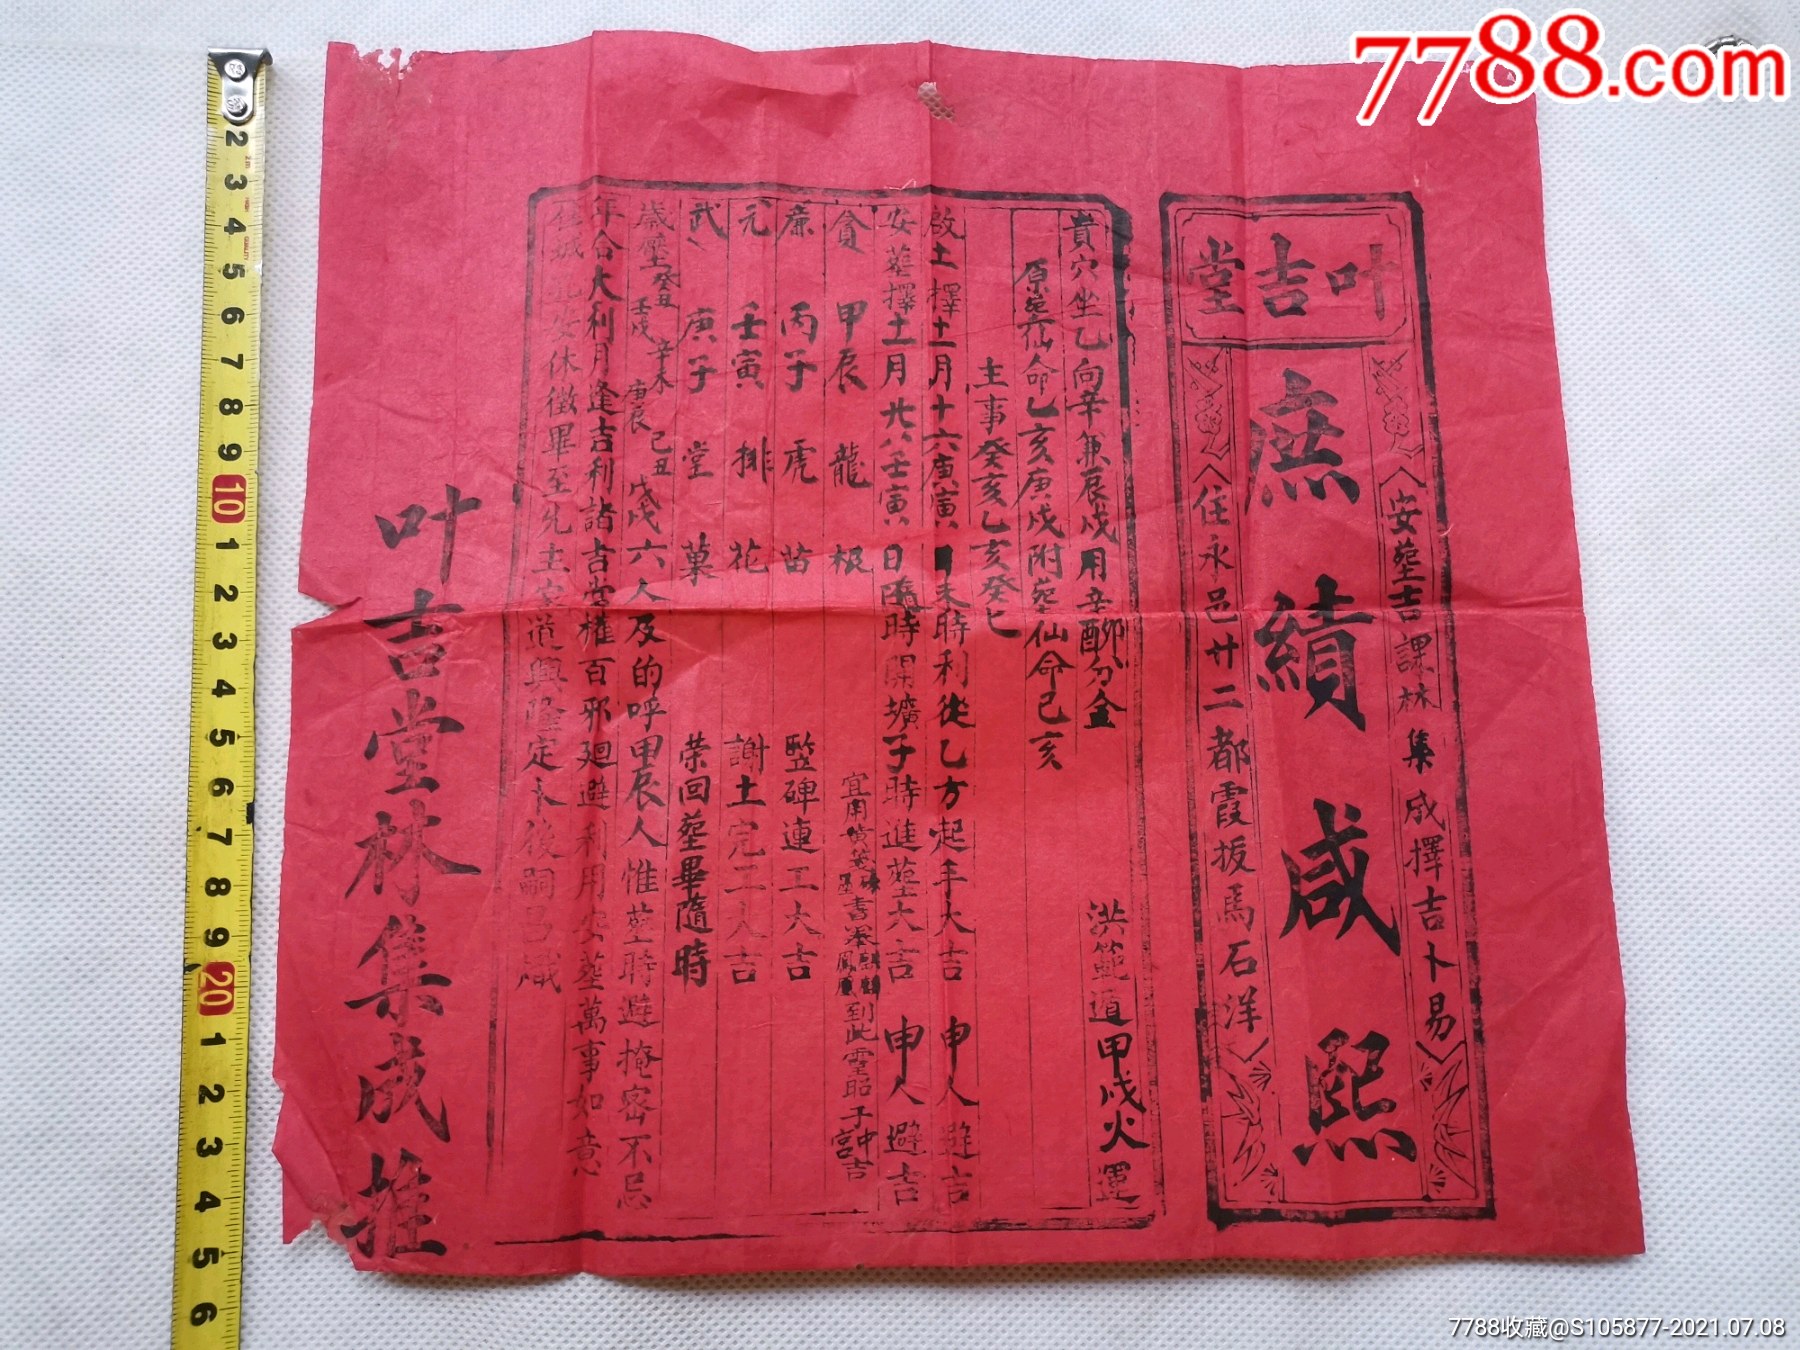 7788.com
叶吉堂
安塟吉課林集成擇吉卜易
庶績咸熙
住永邑廿二都霞扳馬石洋
洪範道甲戌火運
貴穴坐乙向辛兼辰戌用辛卯辛酉分金
原塟仙命乙亥庚戌附塟仙命己亥
主事癸亥乙亥癸巳
啟土擇十一月十六庚寅日未時利從乙方起手大吉 申人避吉
安塟擇十一月廿八壬寅日隨時開壙子時進塟大吉 申人避吉
貪 甲辰 龍 极
廉 丙子 虎 苗 竪碑連工大吉
元 壬寅 排 花 謝土完工大吉
武 庚子 堂 菓 荣回塟畢隨時
歲塟癸丑 壬戌 辛未 庚辰 己丑 戊戌六人及的呼甲辰人惟塟時避掩密不忌
年合大利月逢吉利諸吉掌權百邪廻避利用安塟萬事如意
安休徵畢至先主家道興隆定卜後嗣昌熾
叶吉堂林集成推
2 3 4 5 6 7 8 9 10 1 2 3 4 5 6 7 8 9 20 1 2 3 4 5 6
7788收藏@S105877-2021.07.08